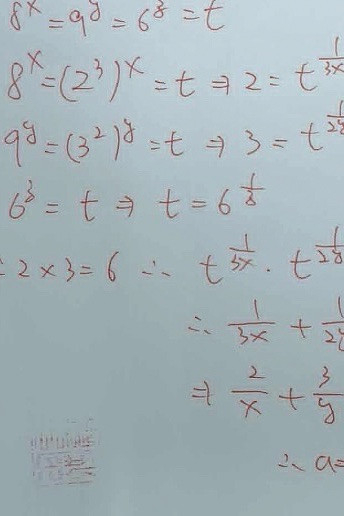 8^x = 9^y = 6^z = t
8^x = (2^3)^x = t ⇒ 2 = t^{1/3x}
9^y = (3^2)^y = t ⇒ 3 = t^{1/2y}
6^z = t ⇒ t = 6^{1/z}
∵ 2 × 3 = 6 ∴ t^{1/3x} · t^{1/2y}
∴ 1/3x + 1/2y
⇒ 2/x + 3/y
∴ a =